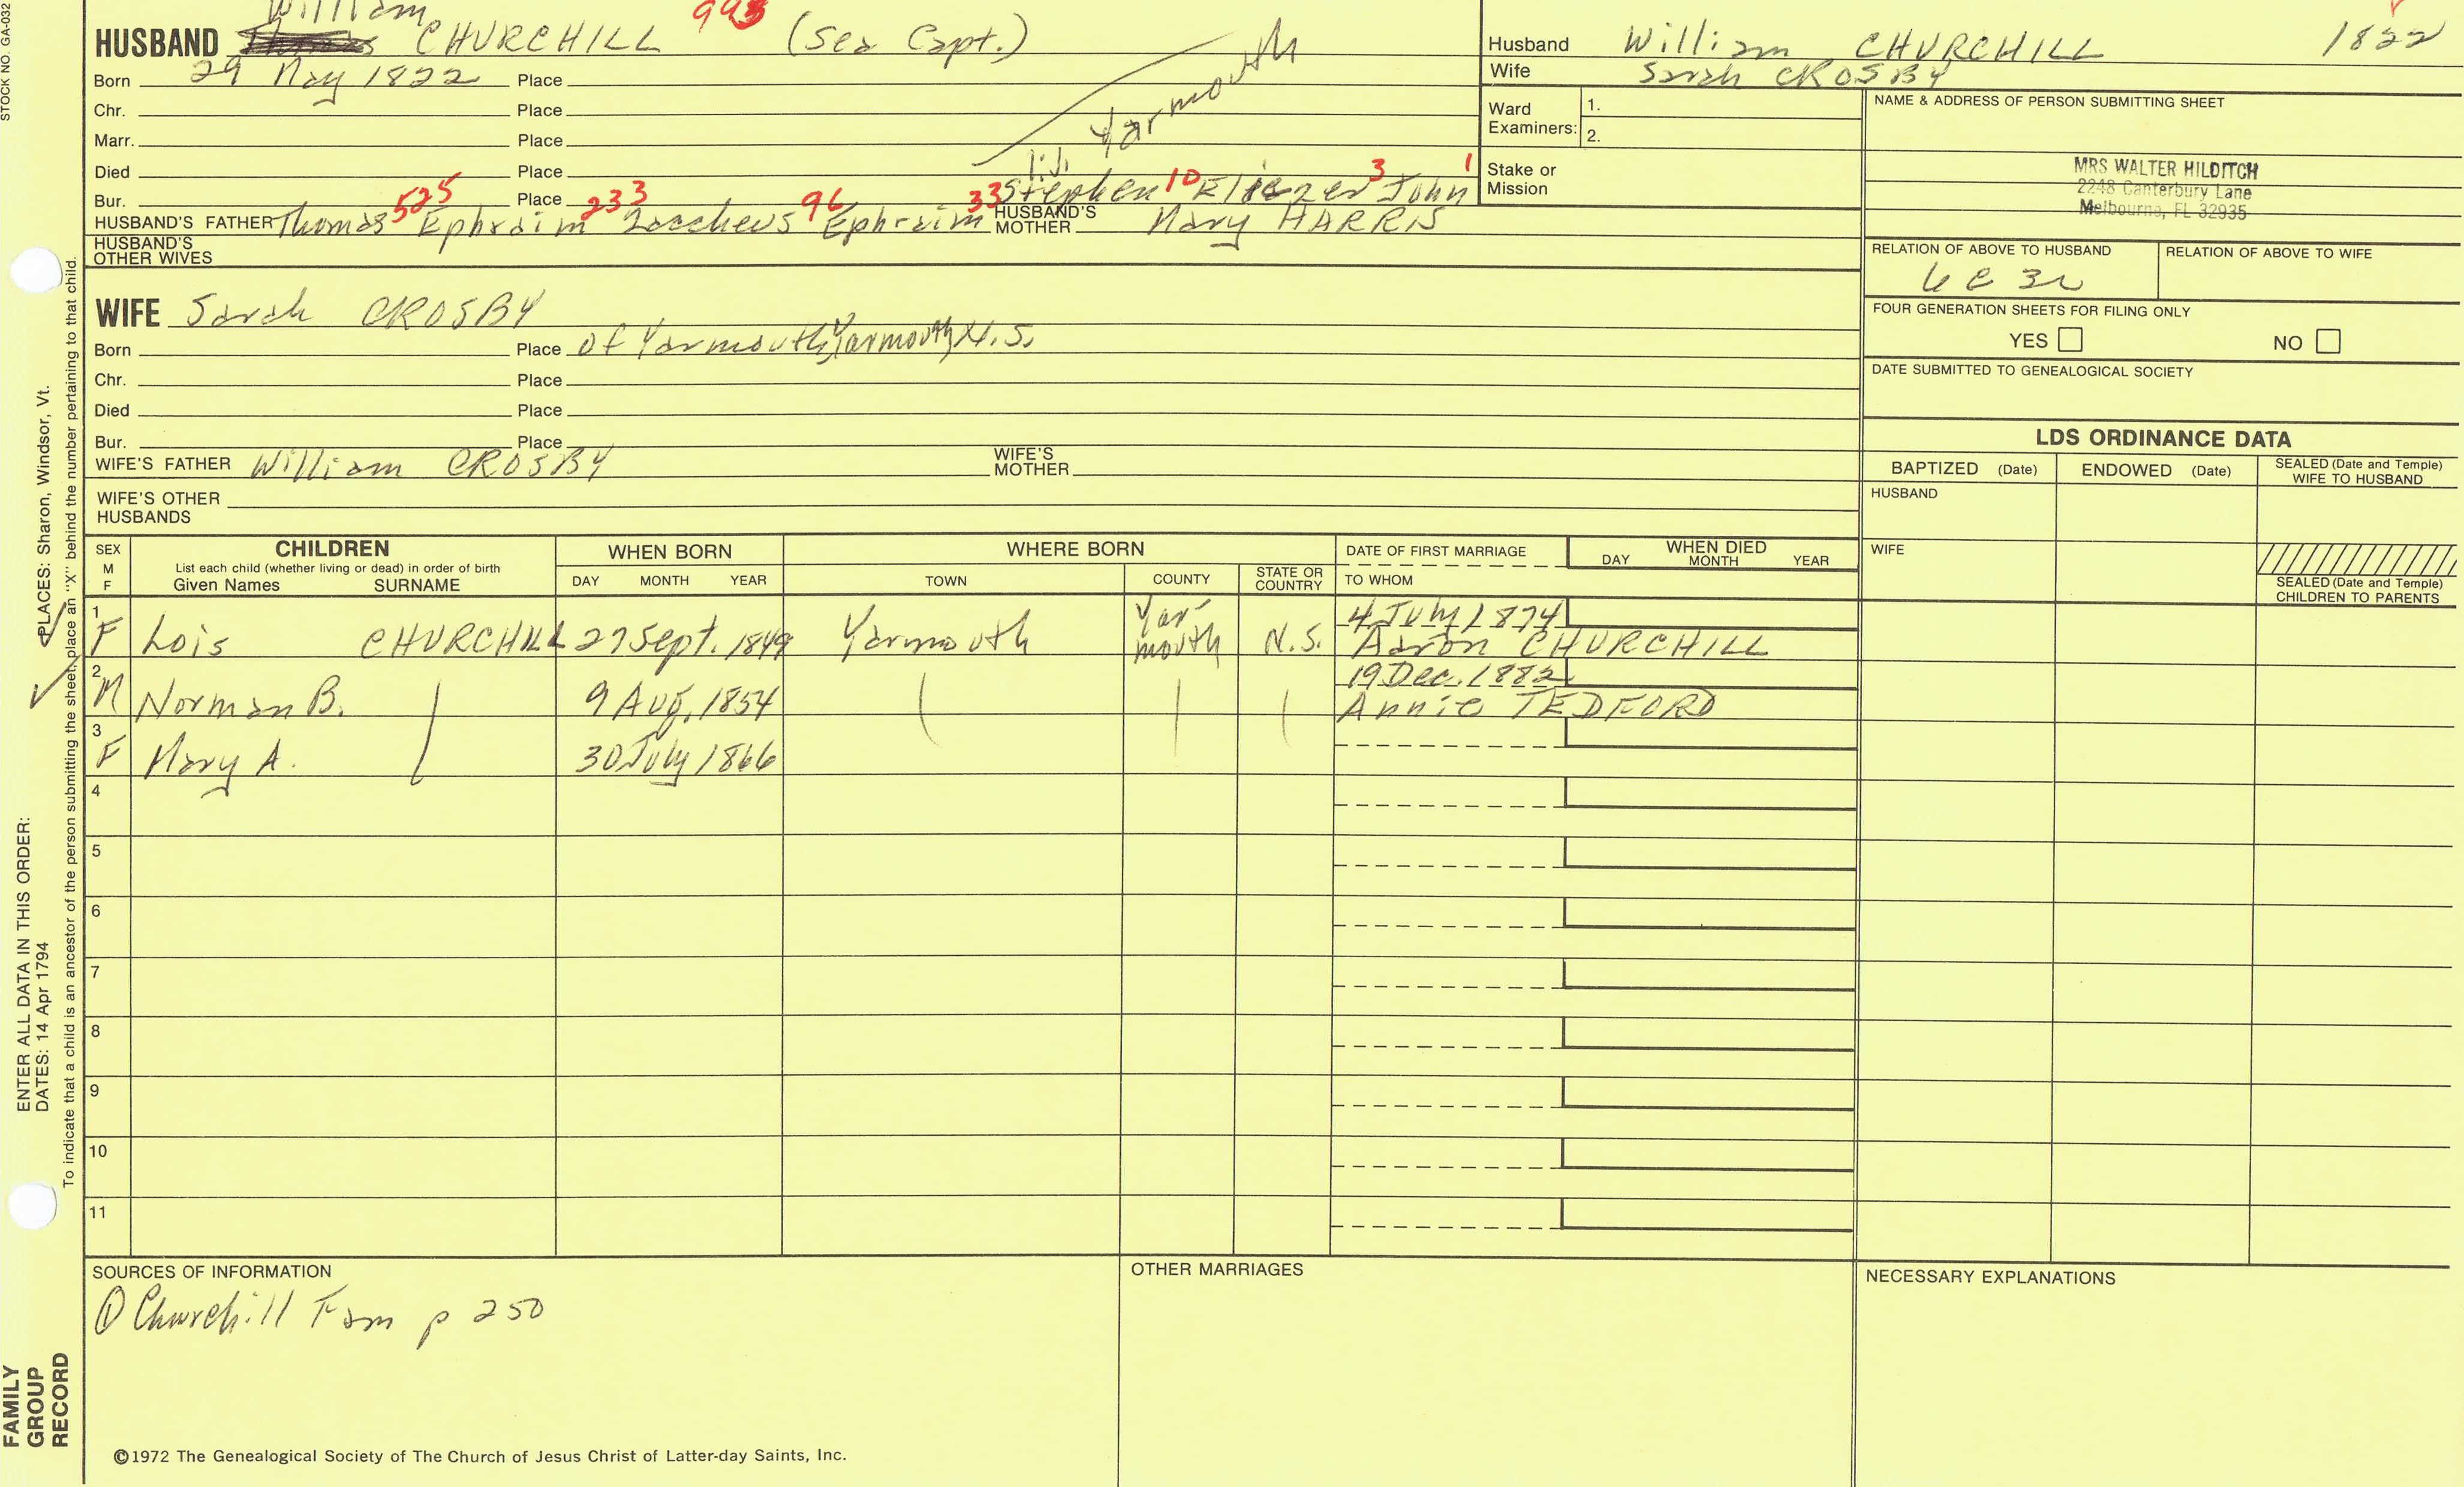 STOCK NO. GA-032
HUSBAND William CHURCHILL 993 (Sea Capt.)
Born 29 May 1822 Place
Chr. Place
Marr. Place
Yarmouth
Died Place
Bur. Place
Stephen 10 Eliezer 3 John 1
HUSBAND'S FATHER Thomas 525 Ephraim 233 Zaccheus 96 Ephraim 33 HUSBAND'S MOTHER Mary HARRIS
HUSBAND'S OTHER WIVES
WIFE Sarah CROSBY
Born Place of Yarmouth, Yarmouth, N.S.
Chr. Place
Died Place
Bur. Place
WIFE'S FATHER William CROSBY WIFE'S MOTHER
WIFE'S OTHER HUSBANDS
Husband William CHURCHILL 1822
Wife Sarah CROSBY
Ward Examiners: 1.
2.
Stake or Mission
NAME & ADDRESS OF PERSON SUBMITTING SHEET
MRS WALTER HILDITCH
2248 Canterbury Lane
Melbourne, FL 32935
RELATION OF ABOVE TO HUSBAND RELATION OF ABOVE TO WIFE
FOUR GENERATION SHEETS FOR FILING ONLY
YES NO
DATE SUBMITTED TO GENEALOGICAL SOCIETY
LDS ORDINANCE DATA
BAPTIZED (Date) ENDOWED (Date) SEALED (Date and Temple) WIFE TO HUSBAND
HUSBAND
WIFE
SEALED (Date and Temple) CHILDREN TO PARENTS
SEX M F CHILDREN WHEN BORN WHERE BORN DATE OF FIRST MARRIAGE WHEN DIED
List each child (whether living or dead) in order of birth
Given Names SURNAME DAY MONTH YEAR TOWN COUNTY STATE OR COUNTRY TO WHOM DAY MONTH YEAR
1 F Lois CHURCHILL 27 Sept. 1849 Yarmouth Yarmouth N.S. 4 July 1874
Aaron CHURCHILL
2 M Norman B. 9 Aug. 1854 19 Dec. 1882
Annie TEDFORD
3 F Mary A. 30 July 1866
4
5
6
7
8
9
10
11
SOURCES OF INFORMATION
① Churchill Fam p 250
OTHER MARRIAGES
NECESSARY EXPLANATIONS
©1972 The Genealogical Society of The Church of Jesus Christ of Latter-day Saints, Inc.
ENTER ALL DATA IN THIS ORDER:
DATES: 14 Apr 1794 PLACES: Sharon, Windsor, Vt.
To indicate that a child is an ancestor of the person submitting the sheet, place an "X" behind the number pertaining to that child.
FAMILY
GROUP
RECORD